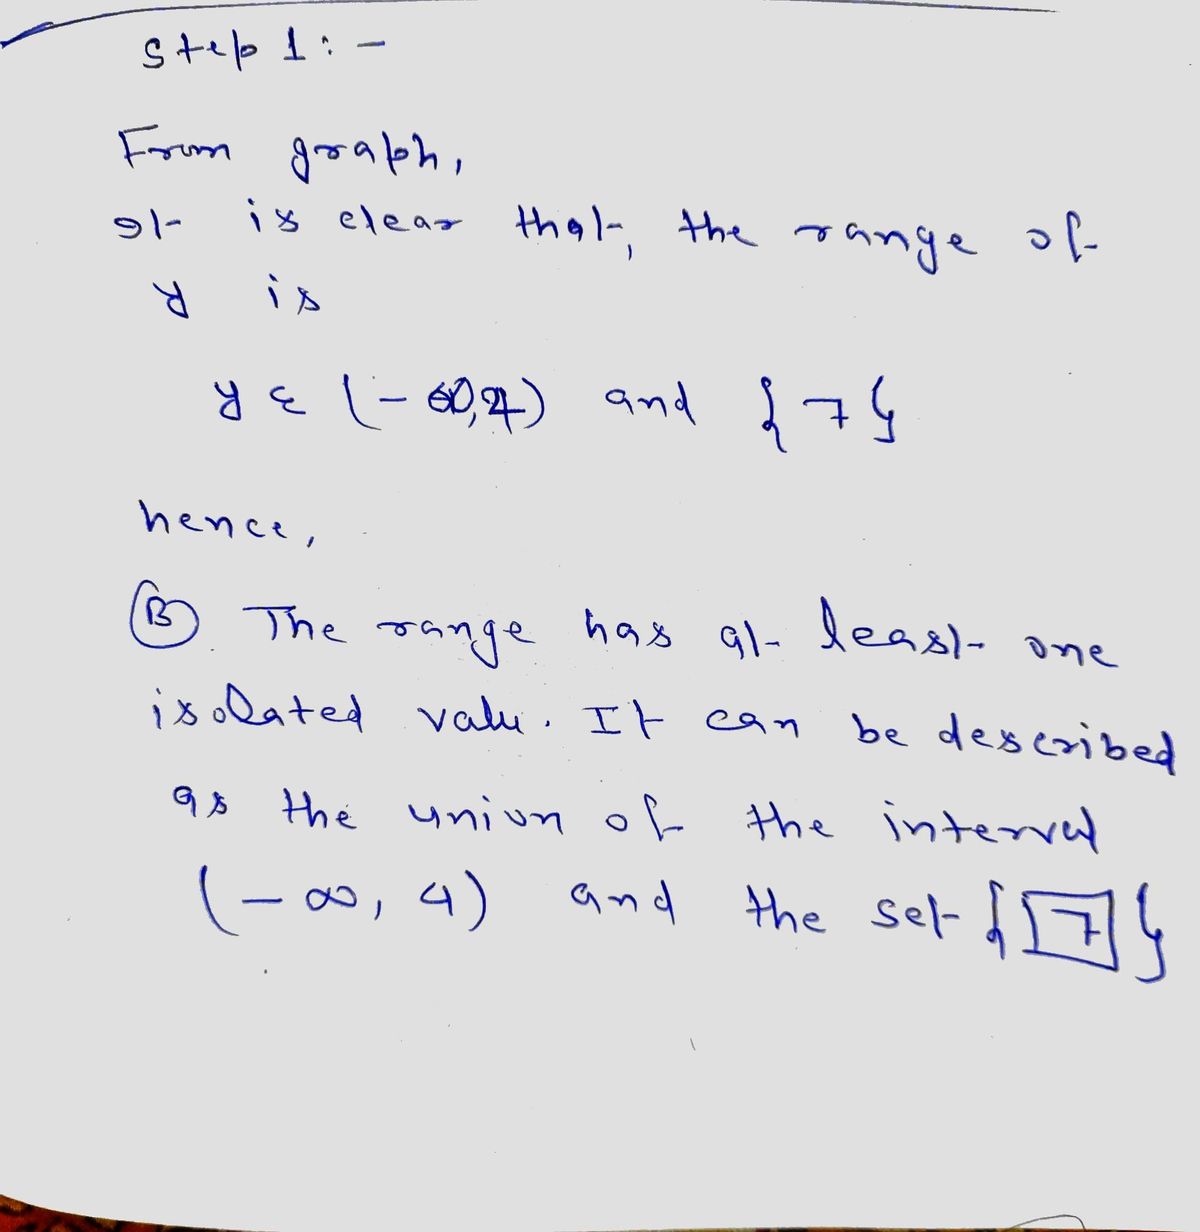 Step 1 : -
From graph,
It is clear that, the range of
y is
y ε (- ∞, 4) and {7}
hence,
(B) The range has at least one
isolated valu. It can be described
as the union of the interval
(- ∞, 4) and the set {7}